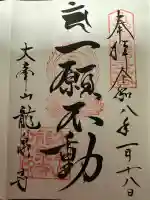 奉拝 令和八年一月十八日
一願不動
大本山龍泉寺